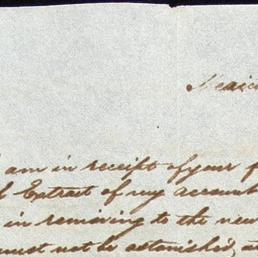 am in receipt of your
Extract of my account
in removing to the new
must not be astonished,